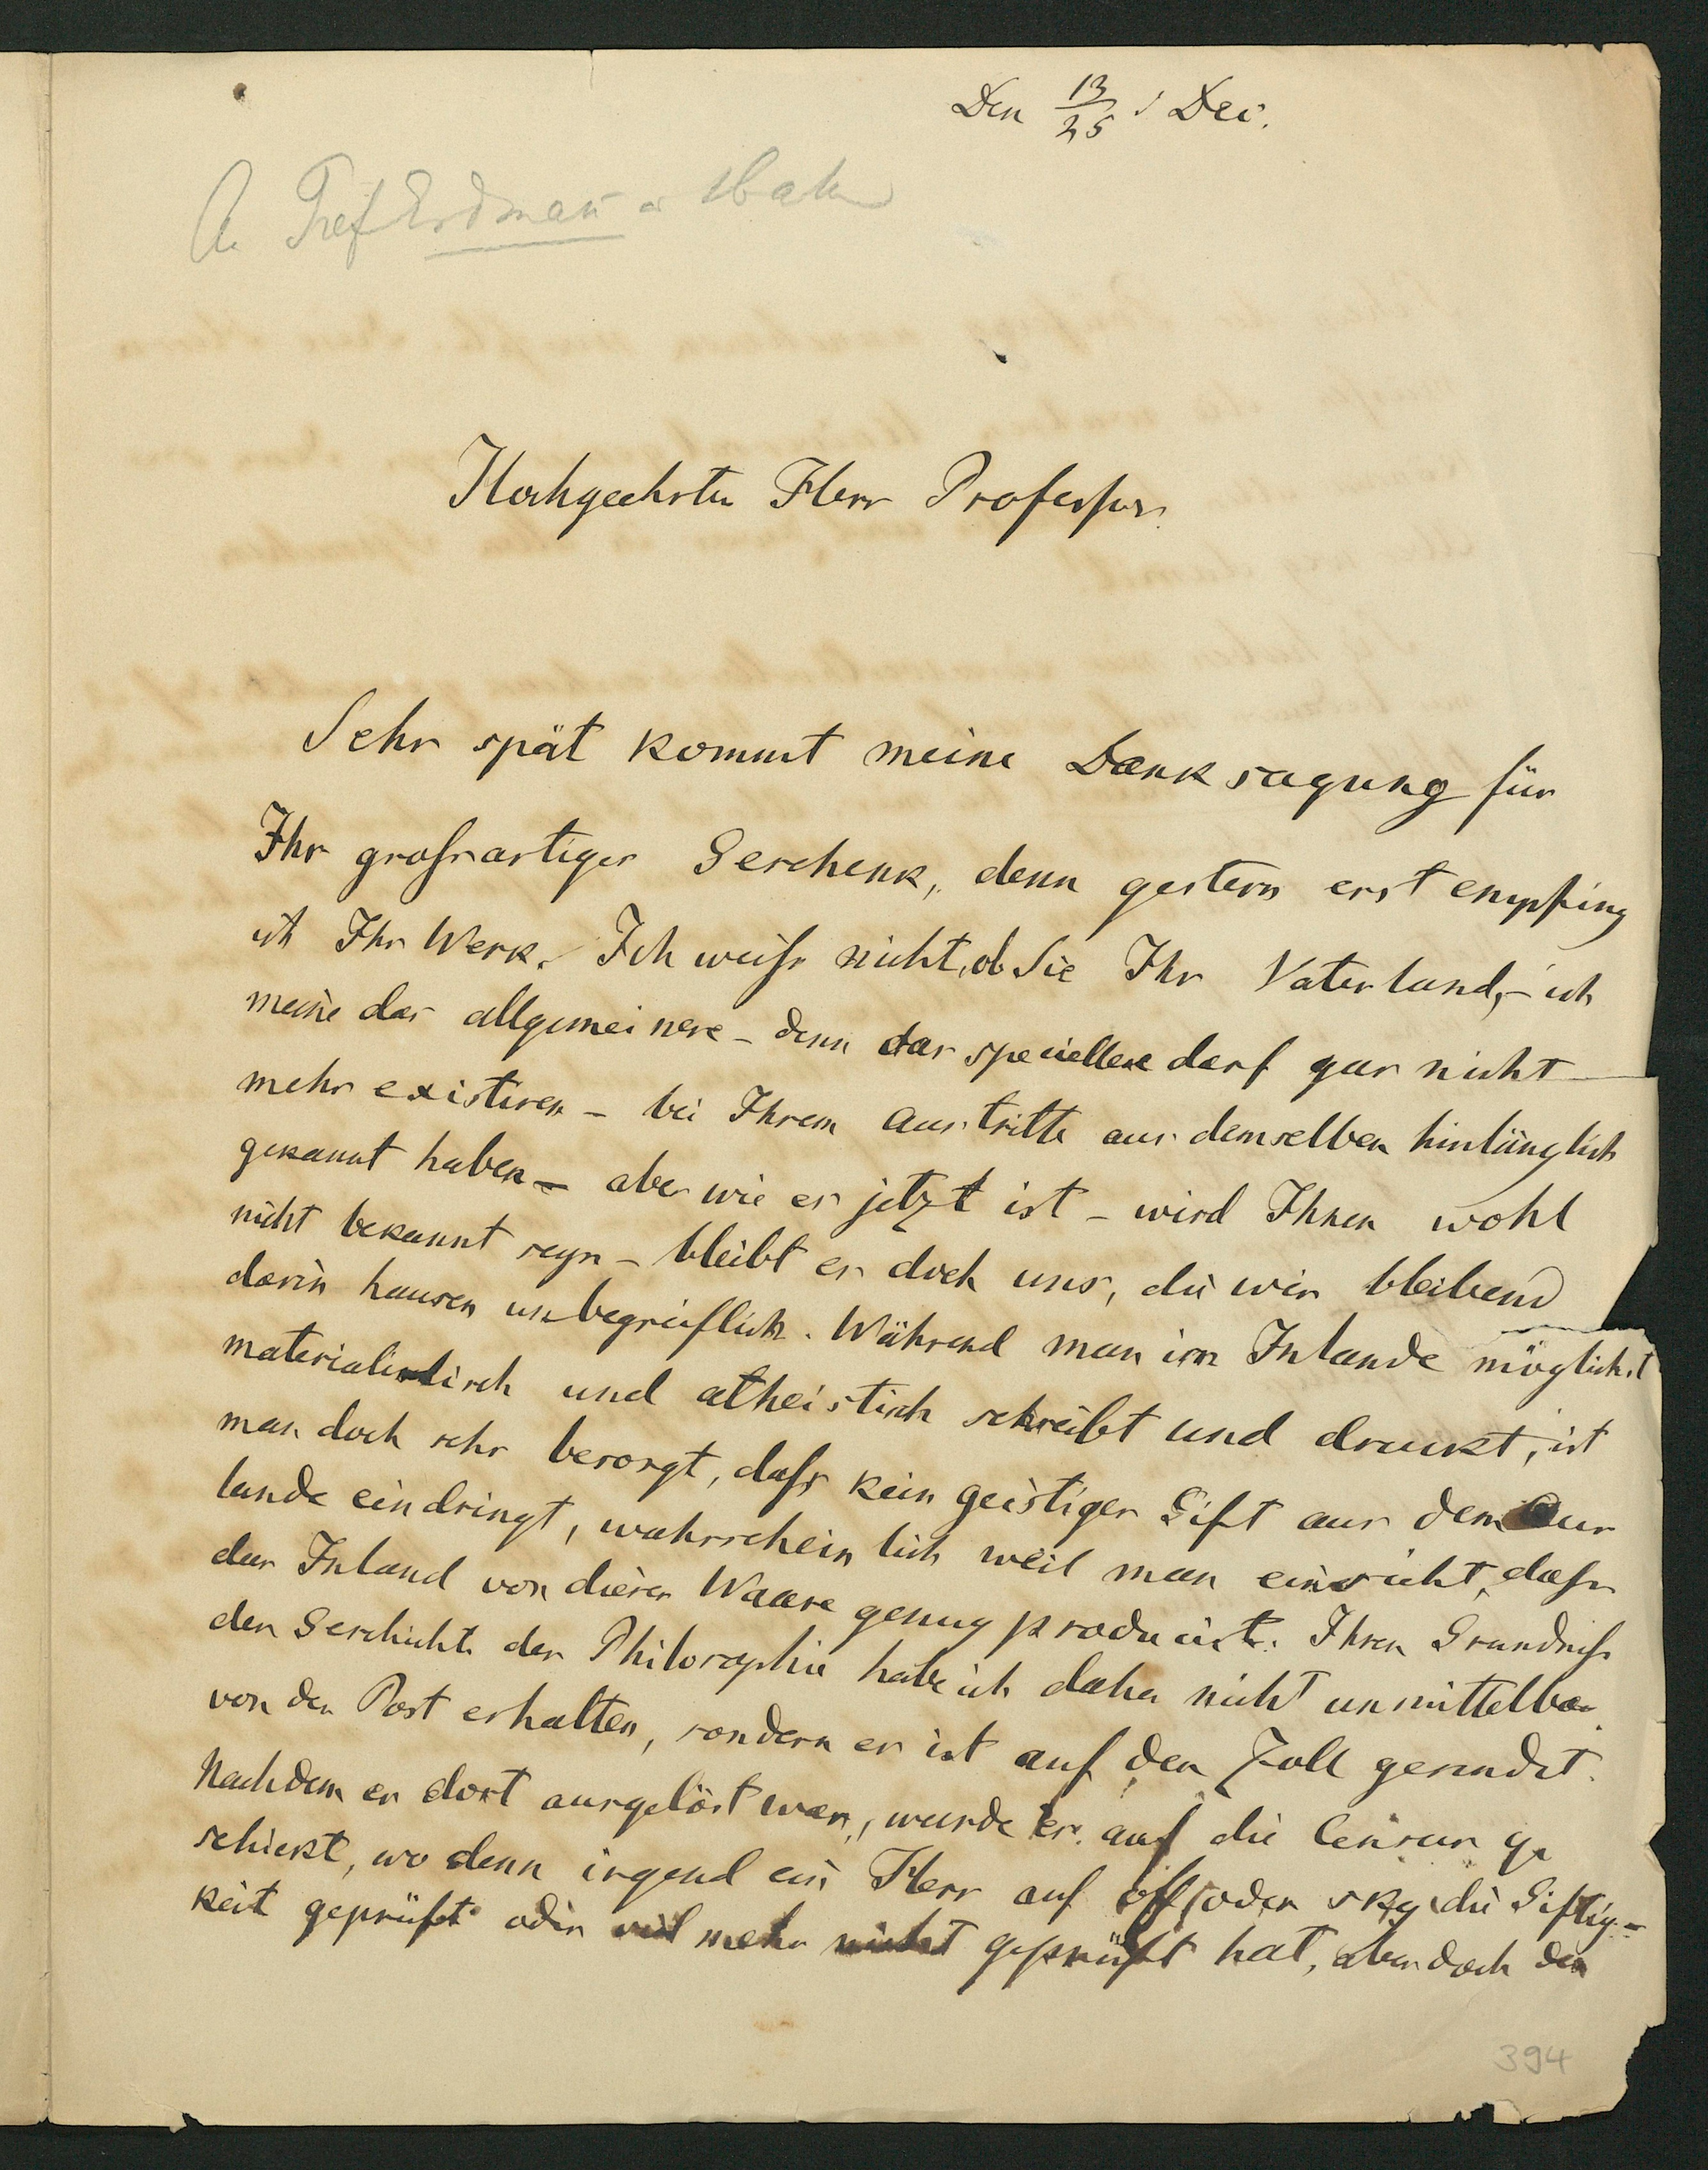 Den 13/25 Dec.
A Prof Erdman
Hochgeehrter Herr Professor
Sehr spät kommt meine Danksagung für
Ihr grossartiges Geschenk, denn gestern erst empfing
ich Ihr Werk. Ich weiss nicht, ob Sie Ihr Vaterland, – ich
meine das allgemeinere – denn das speciellere darf gar nicht
mehr existiren – bei Ihrem Austritte aus demselben hinlänglich
gekannt haben – aber wie es jetzt ist – wird Ihnen wohl
nicht bekannt seyn – bleibt es doch uns, die wir bleibend
darin hausen unbegreiflich. Während man im Inlande möglichst
materialistisch und atheistisch schreibt und druckt, ist
man doch sehr besorgt, dass kein geistiges Gift aus dem Aus
lande eindringt, wahrscheinlich weil man einsieht, dass
das Inland von dieser Waare genug producirt. Ihren Grundriss
der Geschichte der Philosophie habe ich daher nicht unmittelbar
von der Post erhalten, sondern er ist auf den Zoll gesendet.
Nachdem er dort ausgelöst war, wurde er auf die Censur ge
schickt, wo denn irgend ein Herr auf off oder sky die Giftig-
keit geprüft oder viel mehr nicht geprüft hat, aber doch den
394